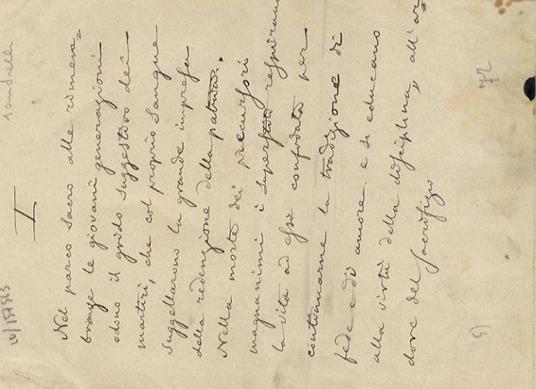 I
Nel parco sacro alle rimem=
branze le giovani generazioni
odono il grido suggestivo dei
martiri, che col proprio sangue
suggellarono la grande impresa
della redenzione della patria.
Nella morte dei precursori
magnanimi i superstiti
la vita ad essi confortata per
continuarne la tradizione di
fede e di amore e si educano
alla virtù della disciplina, all'ar=
dore del sacrifizio
72